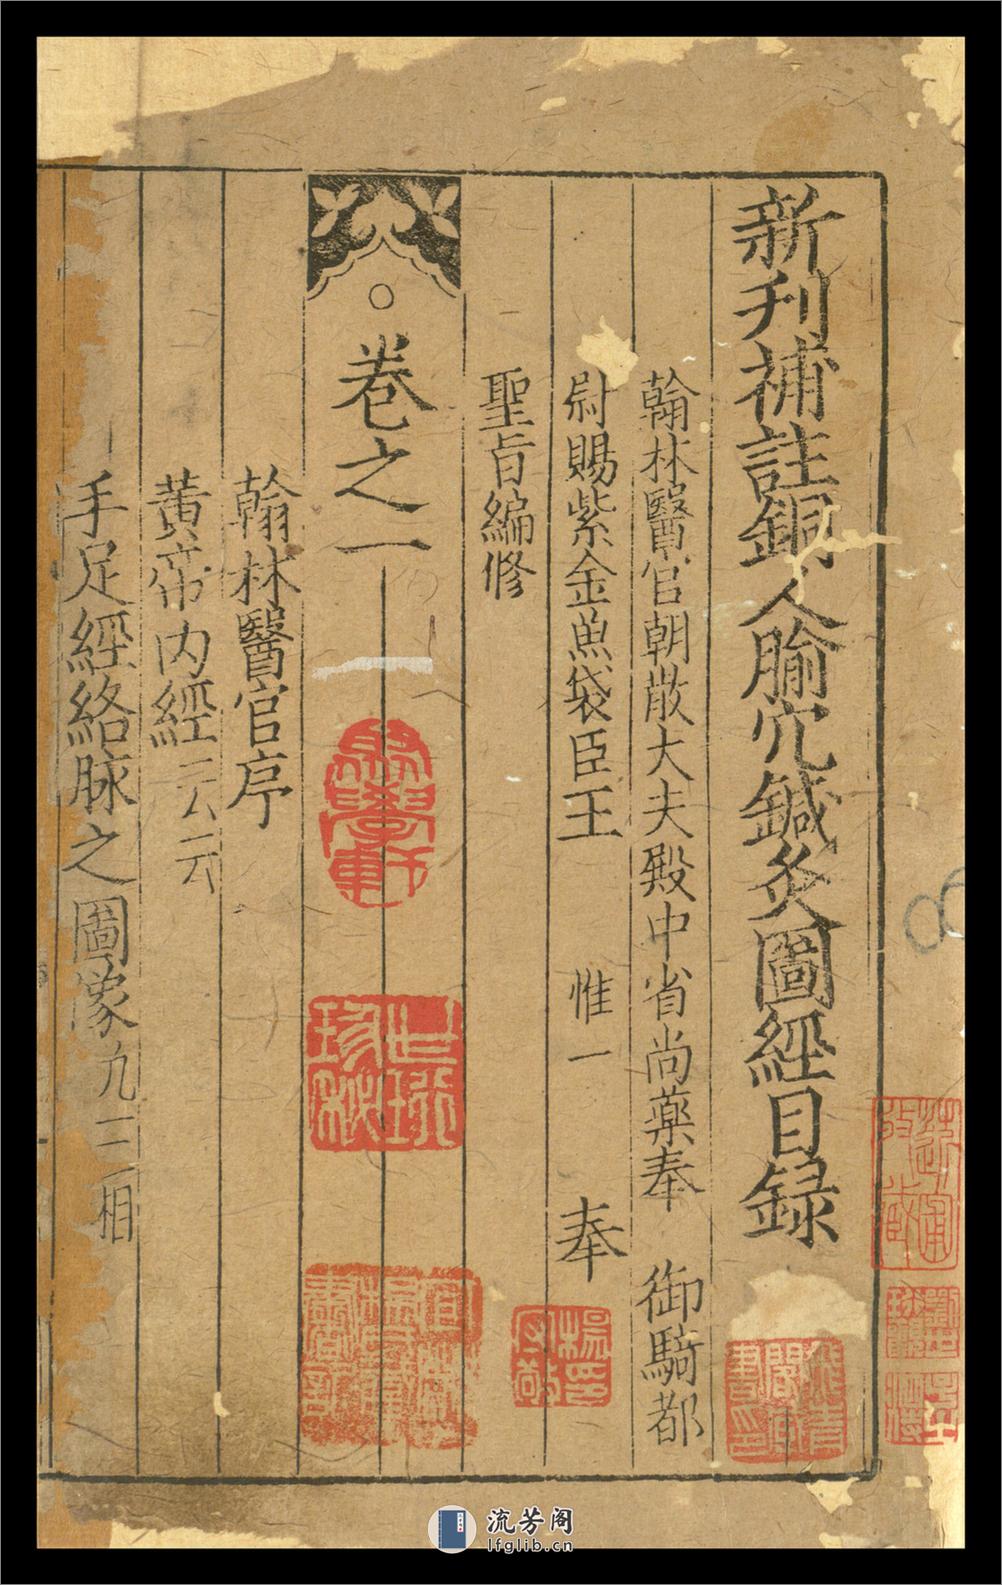 新刊補註銅人腧穴鍼灸圖經目録
翰林醫官朝散大夫殿中省尚藥奉 御騎都
尉賜紫金魚袋臣王 惟一 奉
聖旨編修
○卷之一
翰林醫官序
黃帝内經云云
手足經絡脉之圖像九二相
流芳阁
lfglib.cn